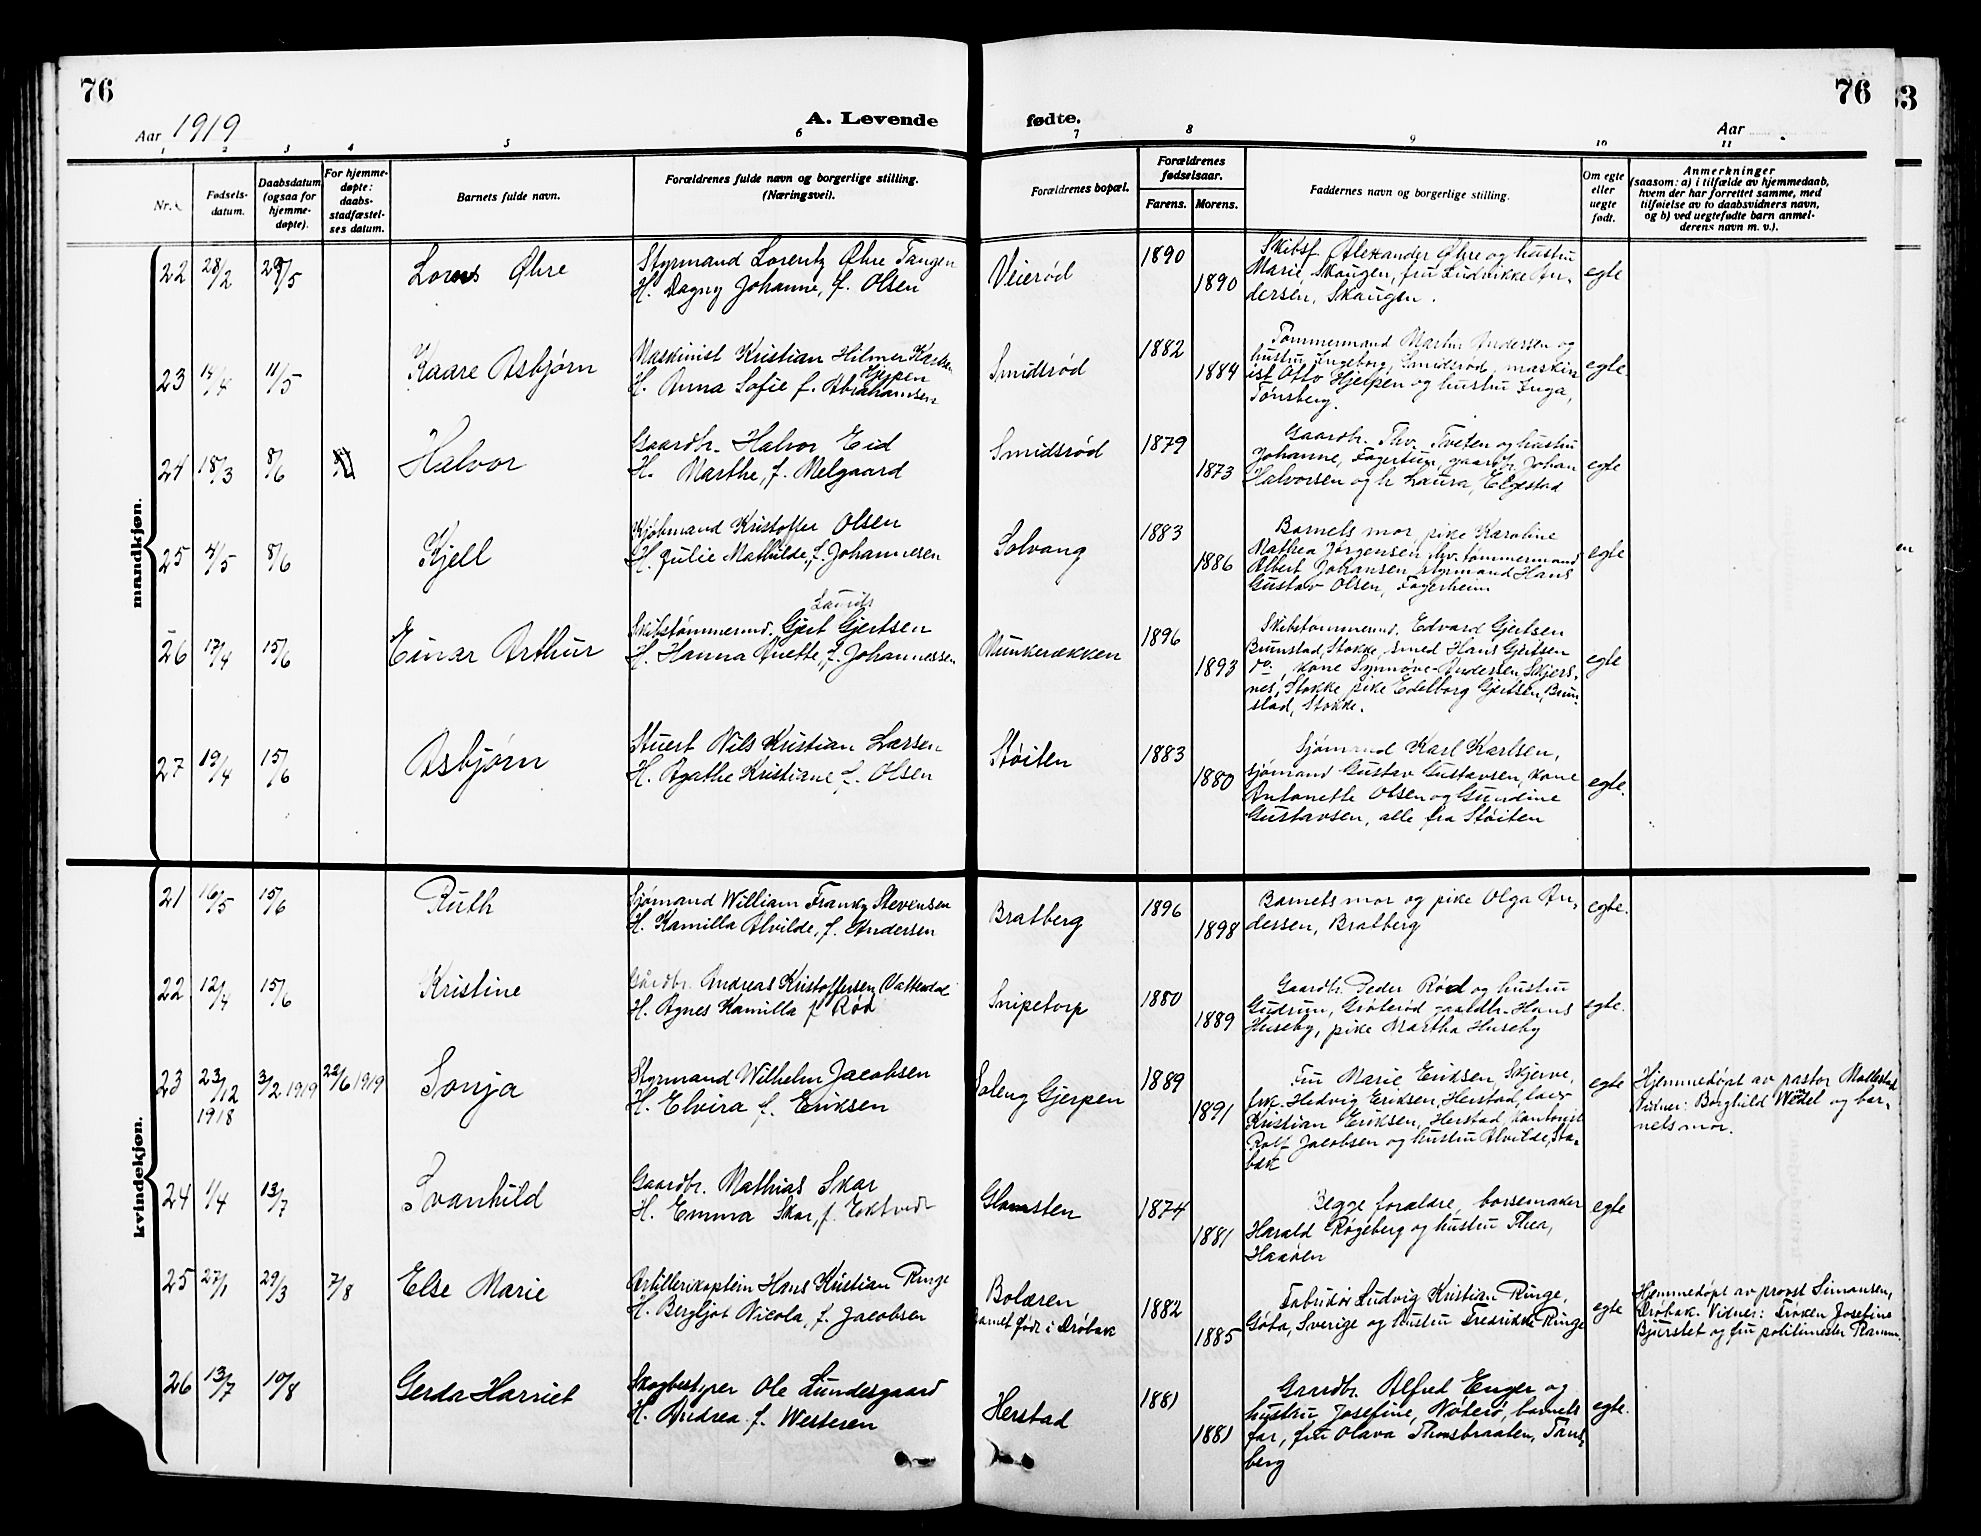 76
76
83
Aar 1919
A. Levende
fødte.
Aar
1
2
3
4
5
6
7
8
9
10
11
Nr.
Fødsels-
datum.
Daabsdatum
(ogsaa for
hjemme-
døpte).
For hjemme-
døpte:
daabs-
stadfæstel-
ses datum.
Barnets fulde navn.
Forældrenes fulde navn og borgerlige stilling.
(Næringsvei).
Forældrenes bopæl.
Forældrenes
fødselsaar.
Farens.
Morens.
Faddernes navn og borgerlige stilling.
Om egte
eller
uegte
født.
Anmerkninger
(saasom: a) i tilfælde av hjemmedaab,
hvem der har forrettet samme, med
tilføielse av to daabsvidners navn,
og b) ved uegtefødte barn anmel-
derens navn m. v.).
mandkjøn.
22 28/2 29/5
Øhre
Styrmand Lorentz Øhre Tangen
H. Dagny Johanne, f. Olsen
Veierød
1890
1890
Skibsf. Alexander Øhre og hustru
Marie, Skaugen, fru Ludvikke An-
dersen, Skaugen.
egte
23 14/4 11/5
Kaare Asbjørn
Maskinist Kristian Hilmer Karlsen
Hjerpen
H. Anna Sofie f. Abrahamsen
Smidsrød
1882
1884
Tømmermand Martin Andersen og
hustru Ingeborg, Smidsrød, maskin
ist Otto Hjerpen og hustru Inga,
Tønsberg.
egte.
24 18/3 8/6
Halvor
Gaardbr. Halvor Eid
H. Marthe, f. Melgaard
Smidsrød
1879
1873
Gaardbr. Thv. Tveten og hustru
Johanne, Fagertun, gaardbr. Johan
Halvorsen og h. Laura, Elgestad
egte
25 4/5 8/6
Kjell
Kjøbmand Kristoffer Olsen
H. Julie Mathilde, f. Johannesen
Solvang
1883
1886
Barnets mor, pike Karoline
Mathea Jørgensen, hv. tømmermand
Albert Johansen, styrmand Hans
Gustav Olsen, Fagerheim
egte
26 17/4 15/6
Einar Arthur
Laurits
Skibstømmermd. Gjert Gjertsen
H. Hanna Anette, f. Johannessen
Munkerækken
1896
1893
Skibstømmermd. Edvard Gjertsen
Brunstad, Stokke, smed Hans Gjertsen
do. kone Synnøve Andersen Skjers-
nes, Stokke pike Edelborg Gjertsen, Brun-
stad, Stokke.
egte
27 19/4 15/6
Asbjørn
Stuert Nils Kristian Larsen
H. Agathe Kristiane f. Olsen
Støiten
1883
1880
Sjømand Karl Karlsen,
sjømand Gustav Gustavsen, kone
Antonette Olsen og Gundine
Gustavsen, alle fra Støiten
egte.
kvindekjøn.
21 16/5 15/6
Ruth
Sjømand William Franky Stevensen
H. Kamilla Alvilde, f. Andersen
Bratberg
1896
1898
Barnets mor og pike Olga An-
dersen, Bratberg
egte.
22 12/4 15/6
Kristine
Gårdbr. Andreas Kristoffersen Valkedal
H. Agnes Kamilla f. Rød
Snipetorp
1880
1889
Gaardbr. Peder Rød og hustru
Gudrun, Grøterød gaardbr. Hans
Huseby, pike Martha Huseby
egte.
23 23/12 1918 3/2 1919 22/6 1919
Sonja
Styrmand Wilhelm Jacobsen
H. Elvira f. Eriksen
Soleng Gjerpen
1889
1891
Fru Marie Eriksen, Skjerve,
frk. Hedvig Eriksen, Herstad,
Kristian Eriksen, Herstad, kontorist
Rolf Jacobsen og hustru Alvilde, Sta-
bæk
egte
Hjemmedøpt av pastor Mollestad
Vidner: Borghild Wedel og bar-
nets mor.
24 1/4 13/7
Svanhild
Gaardbr. Mathias Skar
H. Emma Skar, f. Ektvedt
Glomsten
1874
1881
Begge forældre, børsemaker
Harald Røgeberg og hustru Thea,
Haaøen
egte
25 27/1 29/3 7/8
Else Marie
Artillerikaptein Hans Kristian Ringe
H. Bergljot Nicola, f. Jacobsen
Bolæren
Barnet født i Drøbak
1882
1885
Fabrikør Ludvig Kristian Ringe,
Gøta, Sverige og hustru Fredrikke Ringe
egte
Hjemmedøpt av provst Simonsen,
Drøbak. Vidner: Frøken Josefine
Bjerstet og fru politimester Ramm.
26 13/7 10/8
Gerda Harriet
Skogbestyrer Ole Lundesgaard
H. Andrea f. Westeren
Herstad
1881
1881
Gaardbr. Alfred Enger og
hustru Josefine, Nøterø, barnets
far, fru Olava Thonsbraaten, Tøns-
berg
egte.